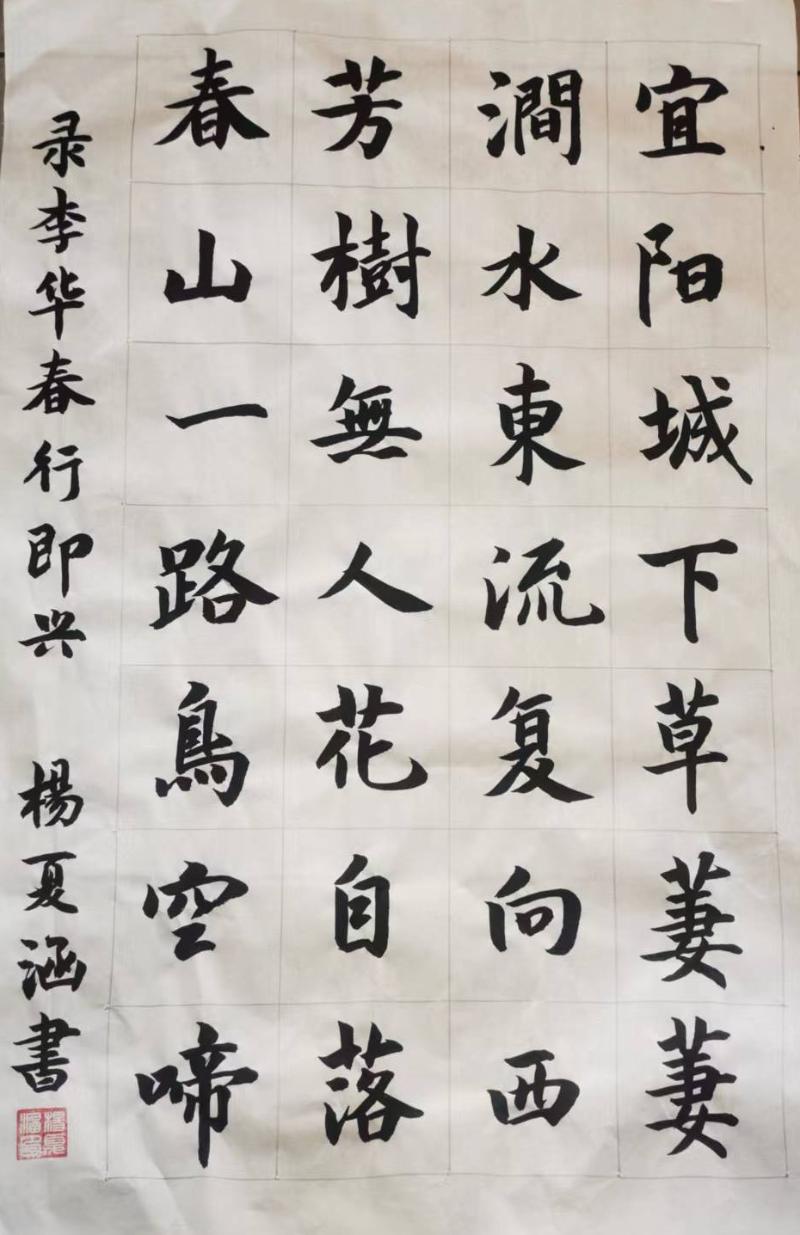 宜阳城下草萋萋
澗水東流复向西
芳樹無人花自落
春山一路鳥空啼
录李华春行即兴 楊夏涵書